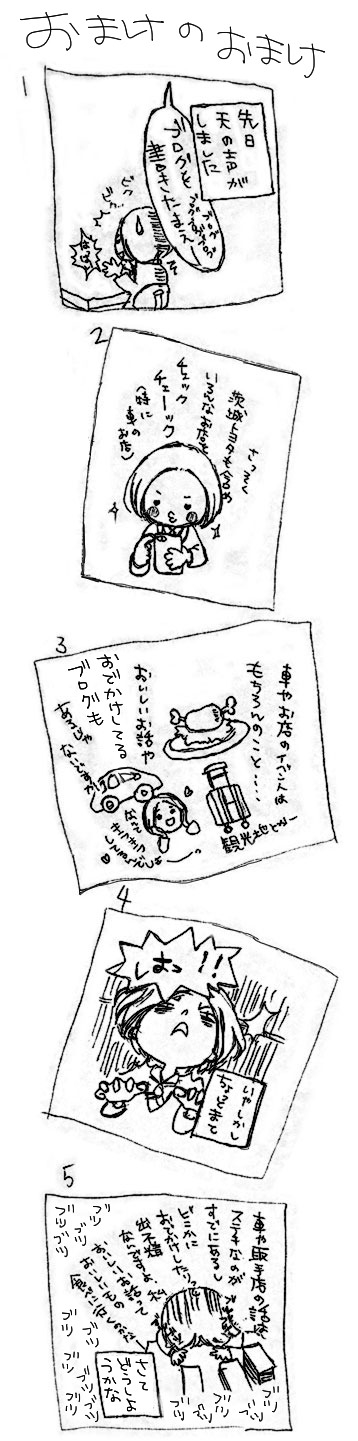 おまけのおまけ
1
先日
天の声が
しました
ブログを
書きたまえ
ビクッ
ビクッ
2
さっそく
茨城トヨタも含め
いろんなお店を
チェック
チェーック
(特に
車の
お店)
3
車やお店のイベントは
もちろんのこと・・・・
観光地とかー
おいしいお話や
おでかけしてる
ブログも
あるじゃ
ないですか
なんて
4
はっ!!
いやしかし
ちょっとまて
5
車や販売店の話は
ステキなのが
すでにあるし
どこかに
おでかけしたいって
出不精
なんですよ、私
おいしいお話って
おいしいもの
さて
どうしよ
うかな
ブツ
ブツ
ブツ
ブツ
ブツ
ブツ
ブツ
ブツ
ブツ
ブツ
ブツ
ブツ